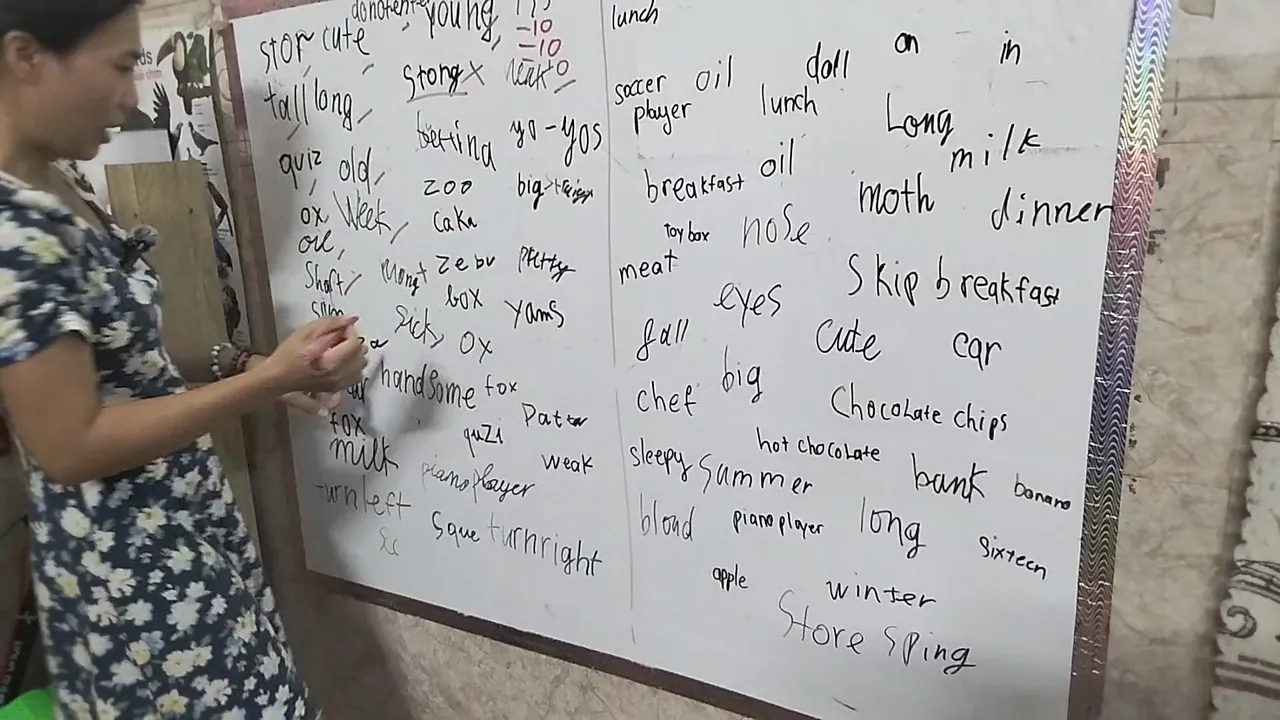 young,
stor, cute
-10
-10
tall long,
stong X
quiz old,
zoo
yo-yos
ox Week,
caka
box yams
sick, ox
handsome fox
fox
quzi
weak
milk
piano player
turn left
sque turn right
lunch
soccer player
oil
doll
on
in
lunch
Long
milk
breakfast
oil
moth
dinner
toy box
nose
meat
eyes
Skip breakfast
fall
cute
car
chef
big
Chocolate chips
sleepy
summer
hot chocolate
bank
banana
piano player
long
sixteen
apple
winter
Store sping